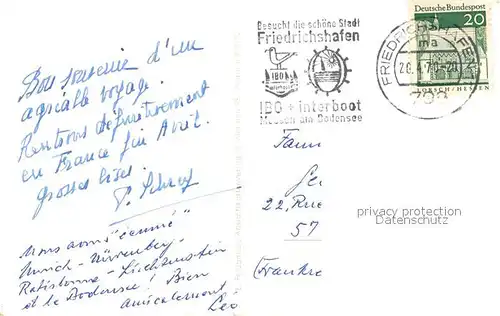 Bon souvenir d'un
agréable voyage.
Rentrons définitivement
en France fin Avril.
grosses bises.
Nous avons "écumé"
Munich - Nüremberg -
Ratisbonne - Liechtenstein
et le Bodensee! Bien
amicalement
Leo
Besucht die schöne Stadt
Friedrichshafen
IBO
IBO + interboot
Messen am Bodensee
Deutsche Bundespost
20
LORSCH/HESSEN
FRIEDRICHSHAFEN
ma
799
Fam
22, Rue
57
privacy protection
Datenschutz